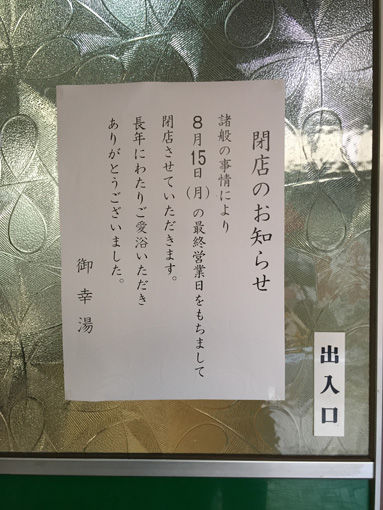 閉店のお知らせ
諸般の事情により
8月15日(月)の最終営業日をもちまして
閉店させていただきます。
長年にわたりご愛浴いただき
ありがとうございました。
御幸湯
出入口